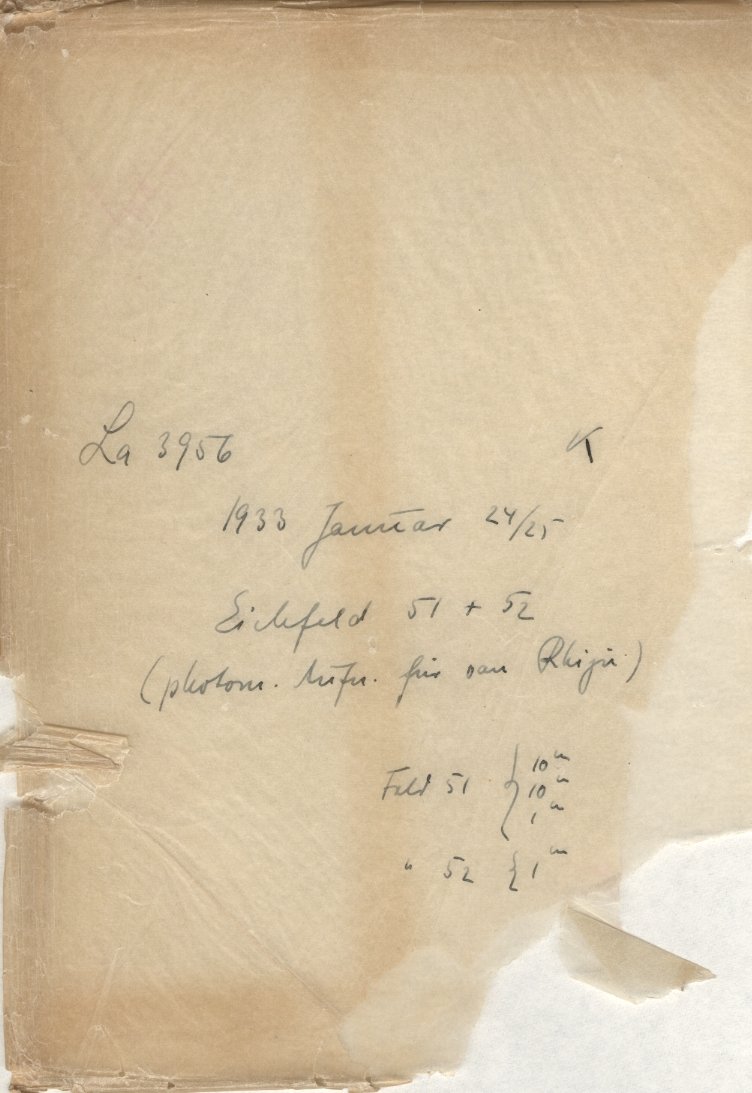 La 3956 K
1933 Januar 24/25
Eichfeld 51 + 52
(photom. Aufn. für van Rhijn)
Feld 51 { 10m
10m
1m
" 52 { 1m